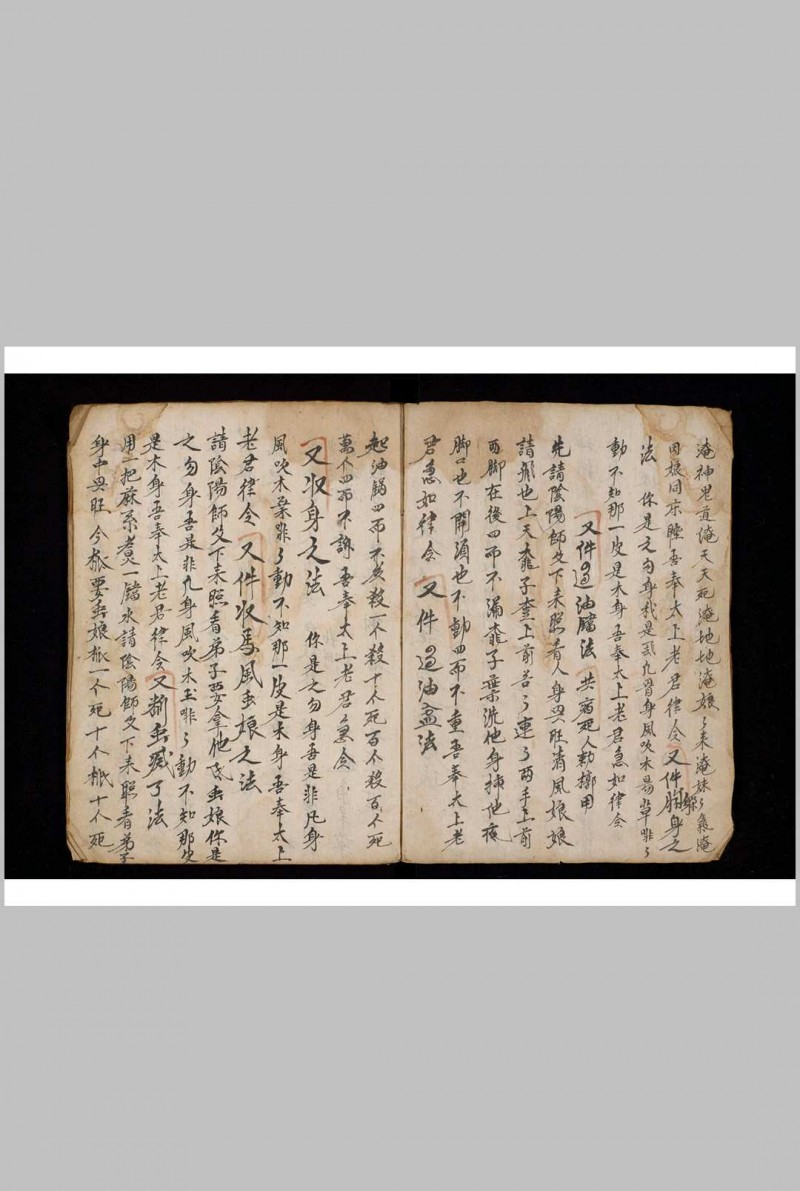 淹神鬼道淹天天死淹地地淹娘〻来淹妹〻氣淹
同娘同京睦吾奉太上老君律令 又件躲身之
法 你是之勾身我是凡骨身風吹木易草啡〻
動不知那一皮是木身吾奉太上老君急如律令
又件過油膅法 共宿死人勅擲用
先請陰陽師父下来照看人身興旺清風娘娘
請飛也上天竜子查上前苦〻連〻两手上前
两脚在後四而不漏竜子葉洗他身捕他夜
脚口也不開須也不動四而不重吾奉太上老
君急如律令 又件過油盆法
起油鍋四而不火殺一不殺十个死百不殺百个死
萬个四而不許吾奉太上老君〻急令
又收身之法 你是之勿身吾是非凡身
風吹木葉啡〻動不知那一皮是木身吾奉太上
老君律令 又件收馬風虫娘之法
請陰陽師父下来照看弟子要拿他虫娘你是
之勿身吾是非凡身風吹木玉啡〻動不知那皮
是木身吾奉太上老君律令 又都虫喊了法
用一把蔴系煮一鐺水請陰陽師父下来照看弟子
身中興旺今派要虫娘派一个死十个派十个死